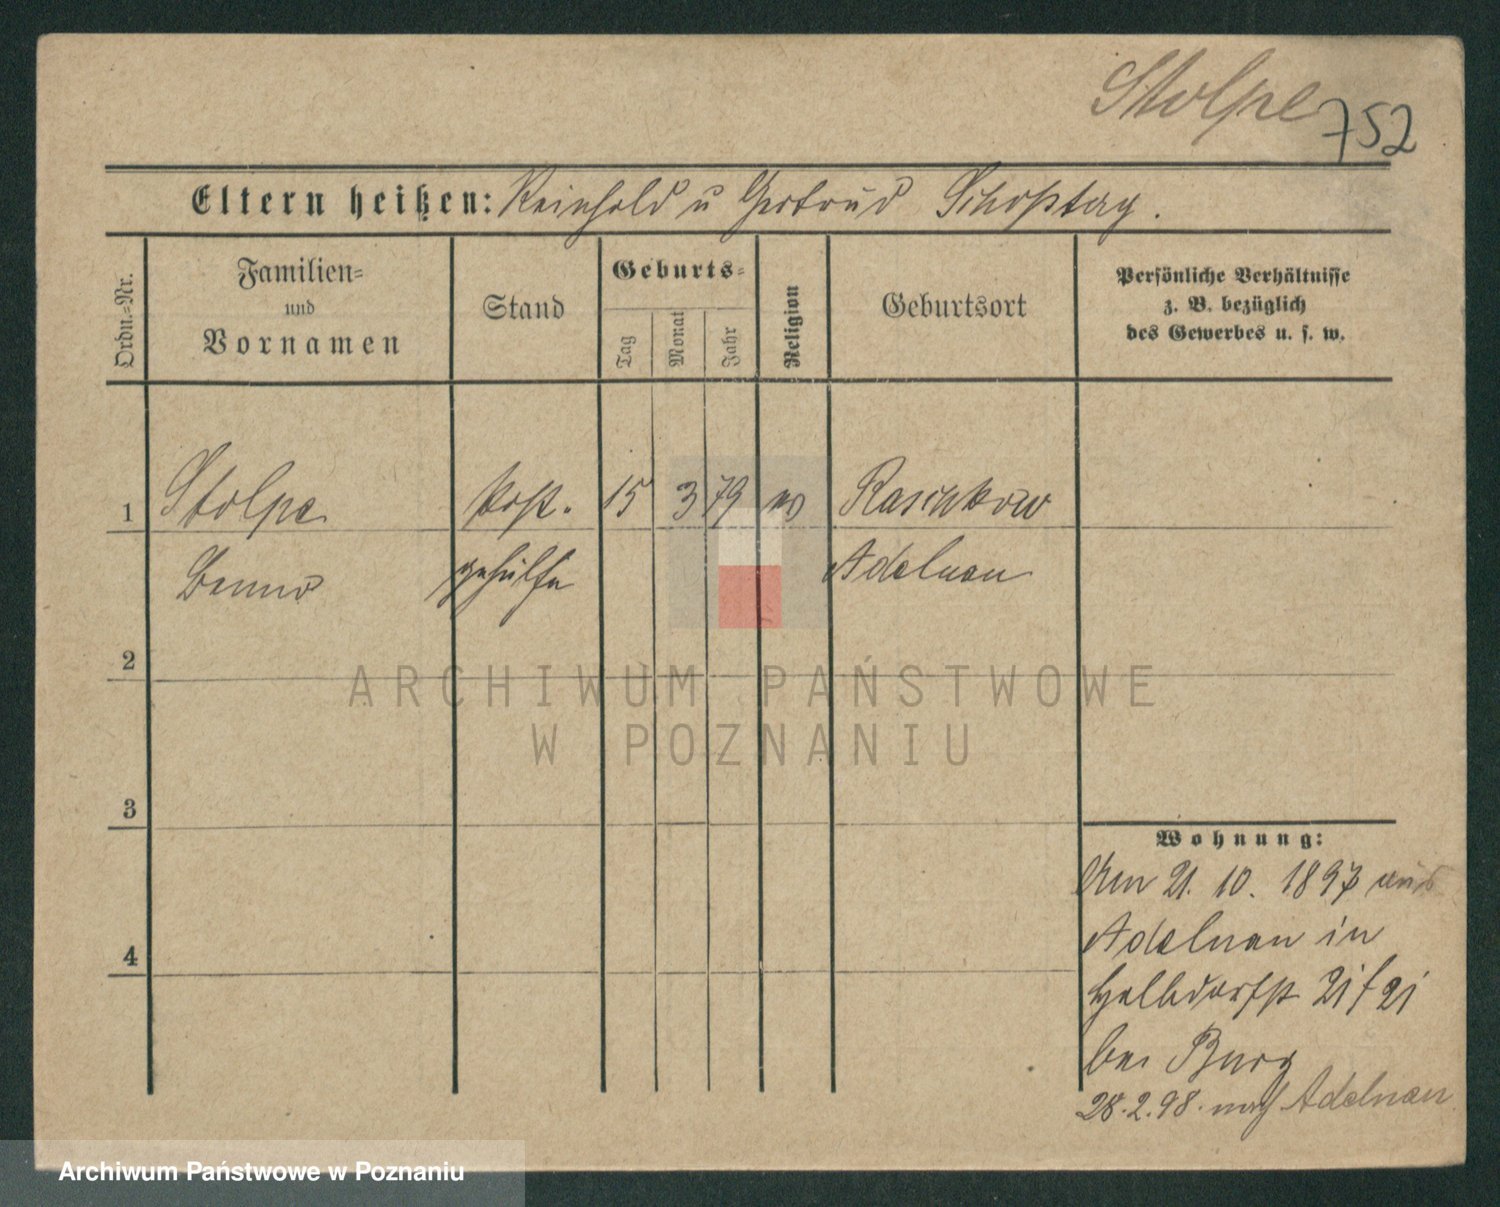 Stolpe
752
Eltern heißen: Reinhold u Gertrud Schoßtag.
Ordn.-Nr.
Familien-
und
Vornamen
Stand
Geburts-
Tag
Monat
Jahr
Religion
Geburtsort
Persönliche Verhältnisse
z. B. bezüglich
des Gewerbes u. s. w.
1 Stolpe Post. 15 3 79 Raschkow
Benno gehülfe Adelnau
2
3
4
Wohnung:
Am 21. 10. 1897 aus
Adelnau in
Halbdorfst 21
bei Burg
28.2.98. nach Adelnau
ARCHIWUM PAŃSTWOWE
W POZNANIU
Archiwum Państwowe w Poznaniu